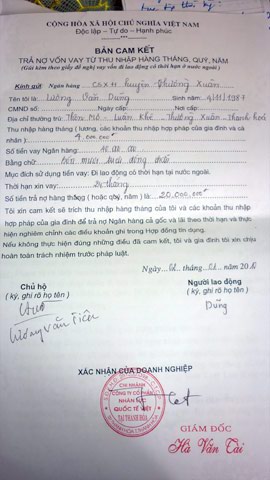 CỘNG HÒA XÃ HỘI CHỦ NGHĨA VIỆT NAM
Độc lập - Tự do - Hạnh phúc
BẢN CAM KẾT
TRẢ NỢ VỐN VAY TỪ THU NHẬP HÀNG THÁNG, QUÝ, NĂM
(Gửi kèm theo giấy đề nghị vay vốn đi lao động có thời hạn ở nước ngoài)
Kính gửi: Ngân hàng CSXH huyện Thường Xuân
Tên tôi là: Lương Văn Dũng Sinh năm: 4/11/1987
CMND số: Ngày cấp: Nơi cấp:
Địa chỉ thường trú: Thôn Mơ - Luận Khê - Thường Xuân - Thanh hoá
Thu nhập hàng tháng ( lương, các khoản thu nhập hợp pháp của gia đình và cá
nhân): 4.000.000đ
Số tiền vay Ngân hàng:
Bằng chữ:
Mục đích sử dụng tiền vay: Đi lao động có thời hạn tại nước ngoài.
Thời hạn xin vay: 24 tháng
Số tiền trả nợ hàng tháng ( hoặc quý, năm ) là: 20.000.000đ
Tôi xin cam kết sẽ trích thu nhập hàng tháng của tôi và các khoản thu nhập
hợp pháp của gia đình để trả nợ Ngân hàng cả gốc và lãi theo thời hạn và thực
hiện nghiêm chỉnh các điều khoản ghi trong Hợp đồng tín dụng.
Nếu không thực hiện đúng những điều đã cam kết, tôi và gia đình tôi xin chịu
hoàn toàn trách nhiệm trước pháp luật.
Ngày tháng năm
Chủ hộ Người lao động
( ký, ghi rõ họ tên ) ( ký, ghi rõ họ tên )
Dũng
Lương Văn Tiên
XÁC NHẬN CỦA DOANH NGHIỆP
CHI NHÁNH
CÔNG TY CỔ PHẦN
NHÂN LỰC
QUỐC TẾ VIỆT
TẠI THANH HÓA
GIÁM ĐỐC
Hà Văn Tài